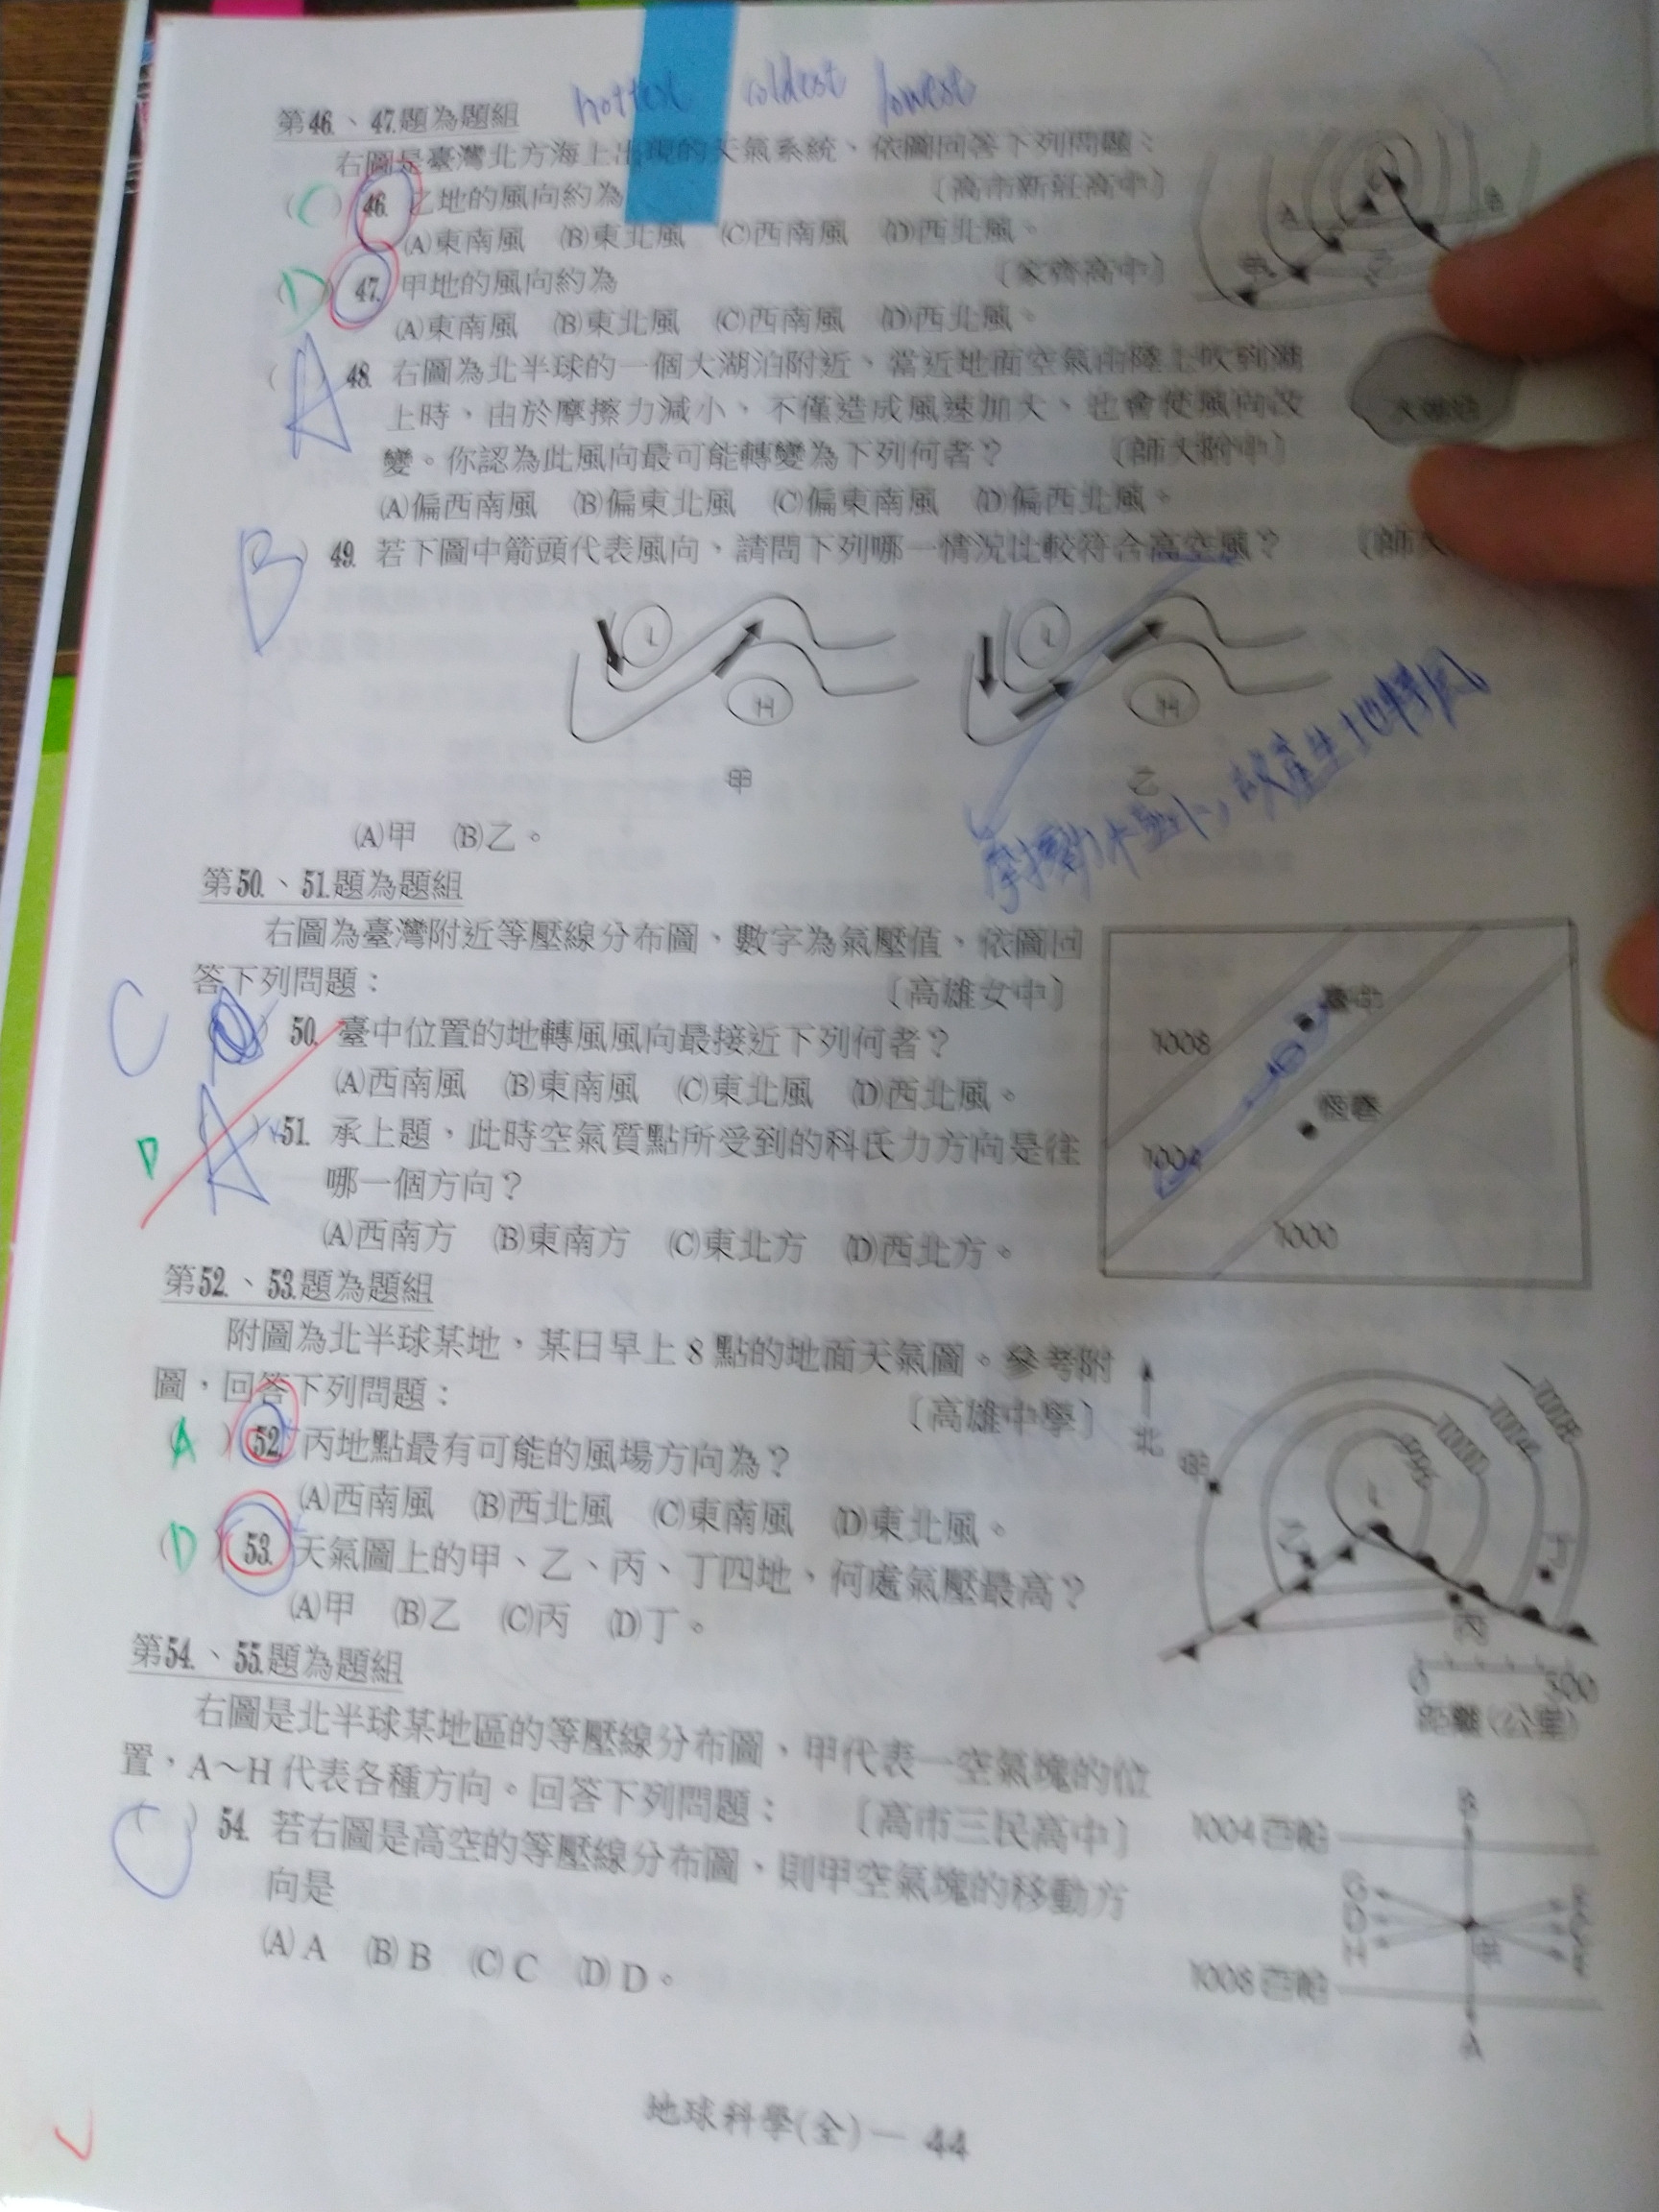 hottest coldest lowest
第46.、47.題為題組
右圖是臺灣北方海上出現的天氣系統,依圖回答下列問題:
(C) 46. 乙地的風向約為 〔高市新莊高中〕
(A)東南風 (B)東北風 (C)西南風 (D)西北風。
(D) 47. 甲地的風向約為 〔家齊高中〕
(A)東南風 (B)東北風 (C)西南風 (D)西北風。
甲
乙
A
(A) 48. 右圖為北半球的一個大湖泊附近,當近地面空氣由陸上吹到湖
上時,由於摩擦力減小,不僅造成風速加大,也會使風向改
變。你認為此風向最可能轉變為下列何者? 〔師大附中〕
(A)偏西南風 (B)偏東北風 (C)偏東南風 (D)偏西北風。
大湖泊
(B) 49. 若下圖中箭頭代表風向,請問下列哪一情況比較符合高空風? 〔師大
L
H
L
H
甲 乙
摩擦力極小,故產生地轉風
(A)甲 (B)乙。
第50.、51.題為題組
右圖為臺灣附近等壓線分布圖,數字為氣壓值,依圖回
答下列問題: 〔高雄女中〕
C
50. 臺中位置的地轉風風向最接近下列何者?
(A)西南風 (B)東南風 (C)東北風 (D)西北風。
D
(A) 51. 承上題,此時空氣質點所受到的科氏力方向是往
哪一個方向?
(A)西南方 (B)東南方 (C)東北方 (D)西北方。
臺中
1008
恆春
1004
1000
第52.、53.題為題組
附圖為北半球某地,某日早上8點的地面天氣圖。參考附
圖,回答下列問題: 〔高雄中學〕
(A) 52. 丙地點最有可能的風場方向為?
(A)西南風 (B)西北風 (C)東南風 (D)東北風。
(D) 53. 天氣圖上的甲、乙、丙、丁四地,何處氣壓最高?
(A)甲 (B)乙 (C)丙 (D)丁。
北
甲
L
乙
丁
丙
0 500
距離(公里)
第54.、55.題為題組
右圖是北半球某地區的等壓線分布圖,甲代表一空氣塊的位
置,A~H代表各種方向。回答下列問題: 〔高市三民高中〕
(C) 54. 若右圖是高空的等壓線分布圖,則甲空氣塊的移動方
向是
(A) A (B) B (C) C (D) D。
B
1004百帕
G
D
H
甲
1008百帕
A
地球科學(全)— 44